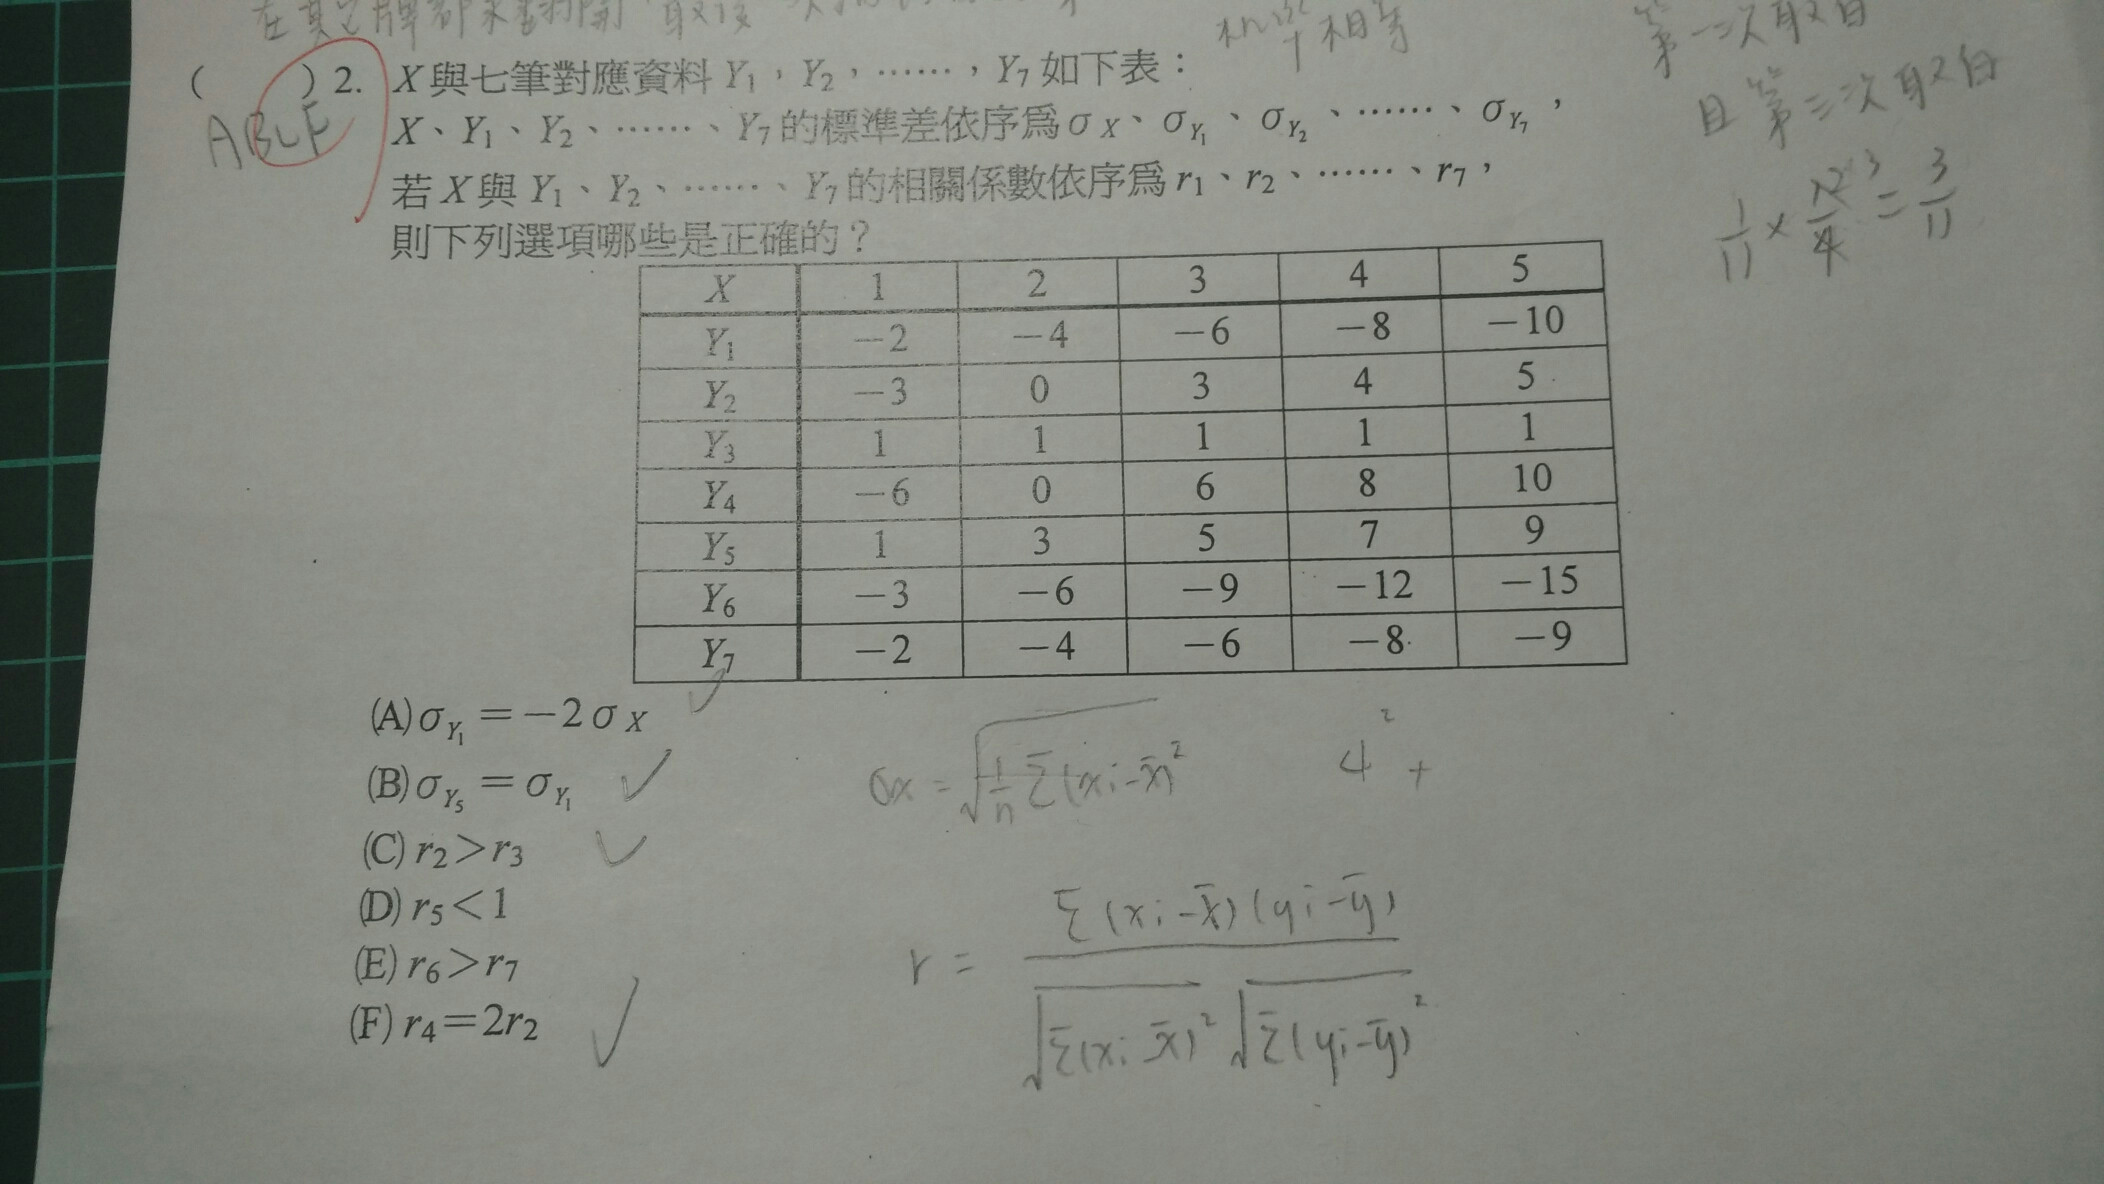 機率相等
第一次取白
且第二次取白
1/11 × 12/4 3 = 3/11
ABCF
( )2. X與七筆對應資料 Y₁,Y₂,……,Y₇ 如下表:
X、Y₁、Y₂、……、Y₇ 的標準差依序為σX、σY₁、σY₂、……、σY₇,
若 X 與 Y₁、Y₂、……、Y₇ 的相關係數依序為 r₁、r₂、……、r₇,
則下列選項哪些是正確的?
X 1 2 3 4 5
Y₁ −2 −4 −6 −8 −10
Y₂ −3 0 3 4 5
Y₃ 1 1 1 1 1
Y₄ −6 0 6 8 10
Y₅ 1 3 5 7 9
Y₆ −3 −6 −9 −12 −15
Y₇ −2 −4 −6 −8 −9
(A) σY₁ = −2σX
(B) σY₅ = σY₁
(C) r₂ > r₃
(D) r₅ < 1
(E) r₆ > r₇
(F) r₄ = 2r₂
σx = √(1/n Σ(xi−x̄)²)
4² +
r = Σ(xi−x̄)(yi−ȳ) / √Σ(xi−x̄)² √Σ(yi−ȳ)²